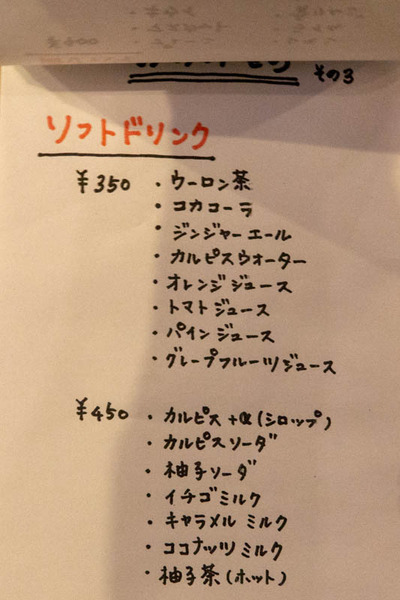 その3
ソフトドリンク
¥350 ・ウーロン茶
・コカコーラ
・ジンジャーエール
・カルピスウォーター
・オレンジジュース
・トマトジュース
・パインジュース
・グレープフルーツジュース
¥450 ・カルピス+α(シロップ)
・カルピスソーダ
・柚子ソーダ
・イチゴミルク
・キャラメルミルク
・ココナッツミルク
・柚子茶(ホット)